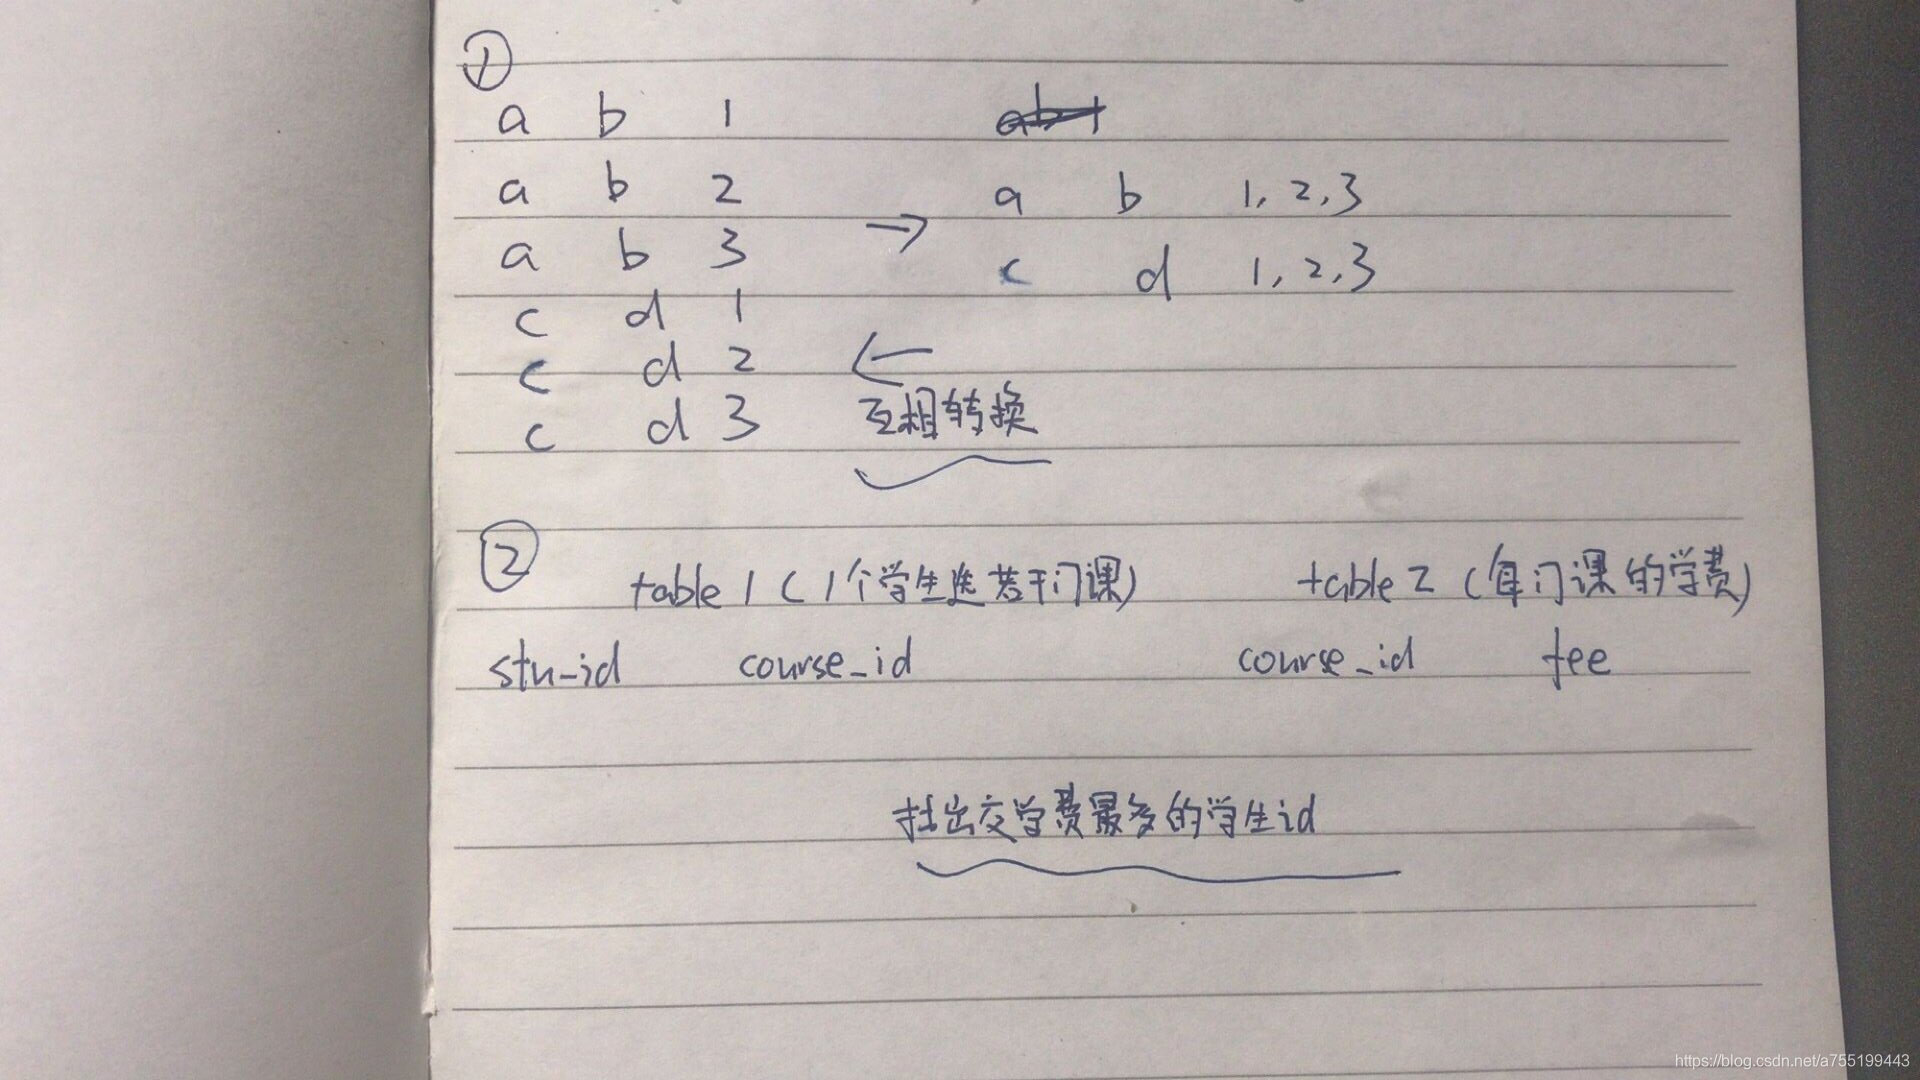 ①
a b 1
a b 2 → a b 1,2,3
a b 3 c d 1,2,3
c d 1
c d 2 ←
c d 3 互相转换
②
table 1 (1个学生选若干门课) table 2 (每门课的学费)
stu_id course_id course_id fee
找出交学费最多的学生id
https://blog.csdn.net/a755199443